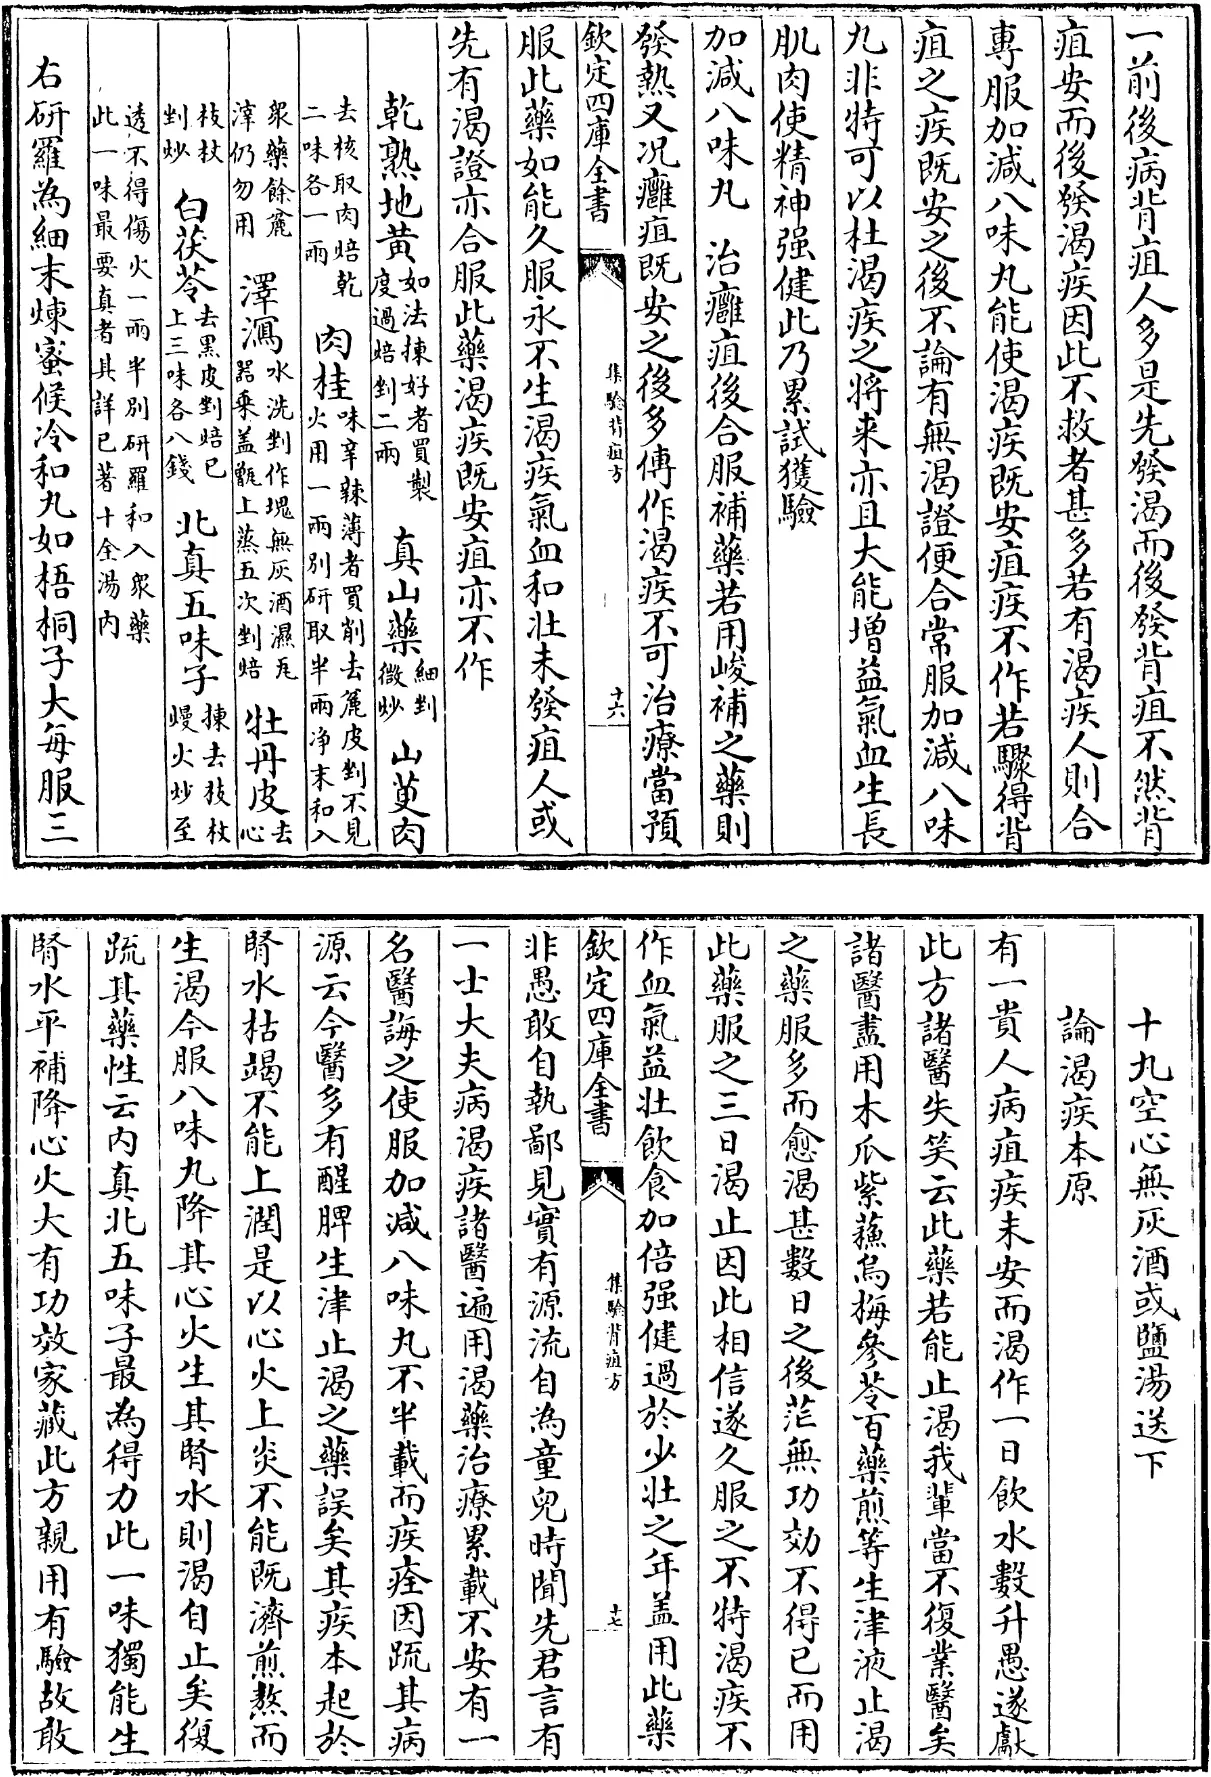 一前後病背疽人多是先發渴而後發背疽不然背
疽安而後發渴疾因此不救者甚多若有渴疾人則合
專服加減八味丸能使渴疾既安疽疾不作若驟得背
疽之疾既安之後不論有無渴證便合常服加減八味
丸非特可以杜渴疾之將来亦且大能增益氣血生長
肌肉使精神强健此乃累試獲驗
加減八味丸　治癰疽後合服補藥若用峻補之藥則
發熱又况癰疽既安之後多傳作渴疾不可治療當預
欽定四庫全書
集驗背疽方
十六
服此藥如能久服永不生渴疾氣血和壯未發疽人或
先有渴證亦合服此藥渴疾既安疽亦不作
乾熟地黄如法揀好者買製度過焙剉二兩　真山藥細剉微炒　山萸肉
去核取肉焙乾二味各一兩　肉桂味辛辣薄者買削去麄皮剉不見火用一兩別研取半兩净末和入
衆藥餘麄滓仍勿用　澤瀉水洗剉作塊無灰酒濕瓦器乘盖甑上蒸五次剉焙　牡丹皮去心
枝杖剉炒　白茯苓去黑皮剉焙已上三味各八錢　北真五味子揀去枝杖慢火炒至
透不得傷火一兩半別研羅和入衆藥此一味最要真者其詳已著十全湯内
右研羅為細末煉蜜候冷和丸如梧桐子大每服三
十丸空心無灰酒或鹽湯送下
論渴疾本原
有一貴人病疽疾未安而渴作一日飲水數升愚遂獻
此方諸醫失笑云此藥若能止渴我輩當不復業醫矣
諸醫盡用木瓜紫蘓烏梅參苓百藥煎等生津液止渴
之藥服多而愈渴甚數日之後茫無功効不得已而用
此藥服之三日渴止因此相信遂久服之不特渴疾不
作血氣益壯飲食加倍强健過於少壯之年盖用此藥
欽定四庫全書
集驗背疽方
十七
非愚敢自執鄙見實有源流自為童兒時聞先君言有
一士大夫病渴疾諸醫遍用渴藥治療累載不安有一
名醫誨之使服加减八味丸不半載而疾痊因疏其病
源云今醫多有醒脾生津止渴之藥誤矣其疾本起於
腎水枯竭不能上潤是以心火上炎不能既濟煎熬而
生渴今服八味丸降其心火生其腎水則渴自止矣復
疏其藥性云内真北五味子最為得力此一味獨能生
腎水平補降心火大有功效家藏此方親用有驗故敢